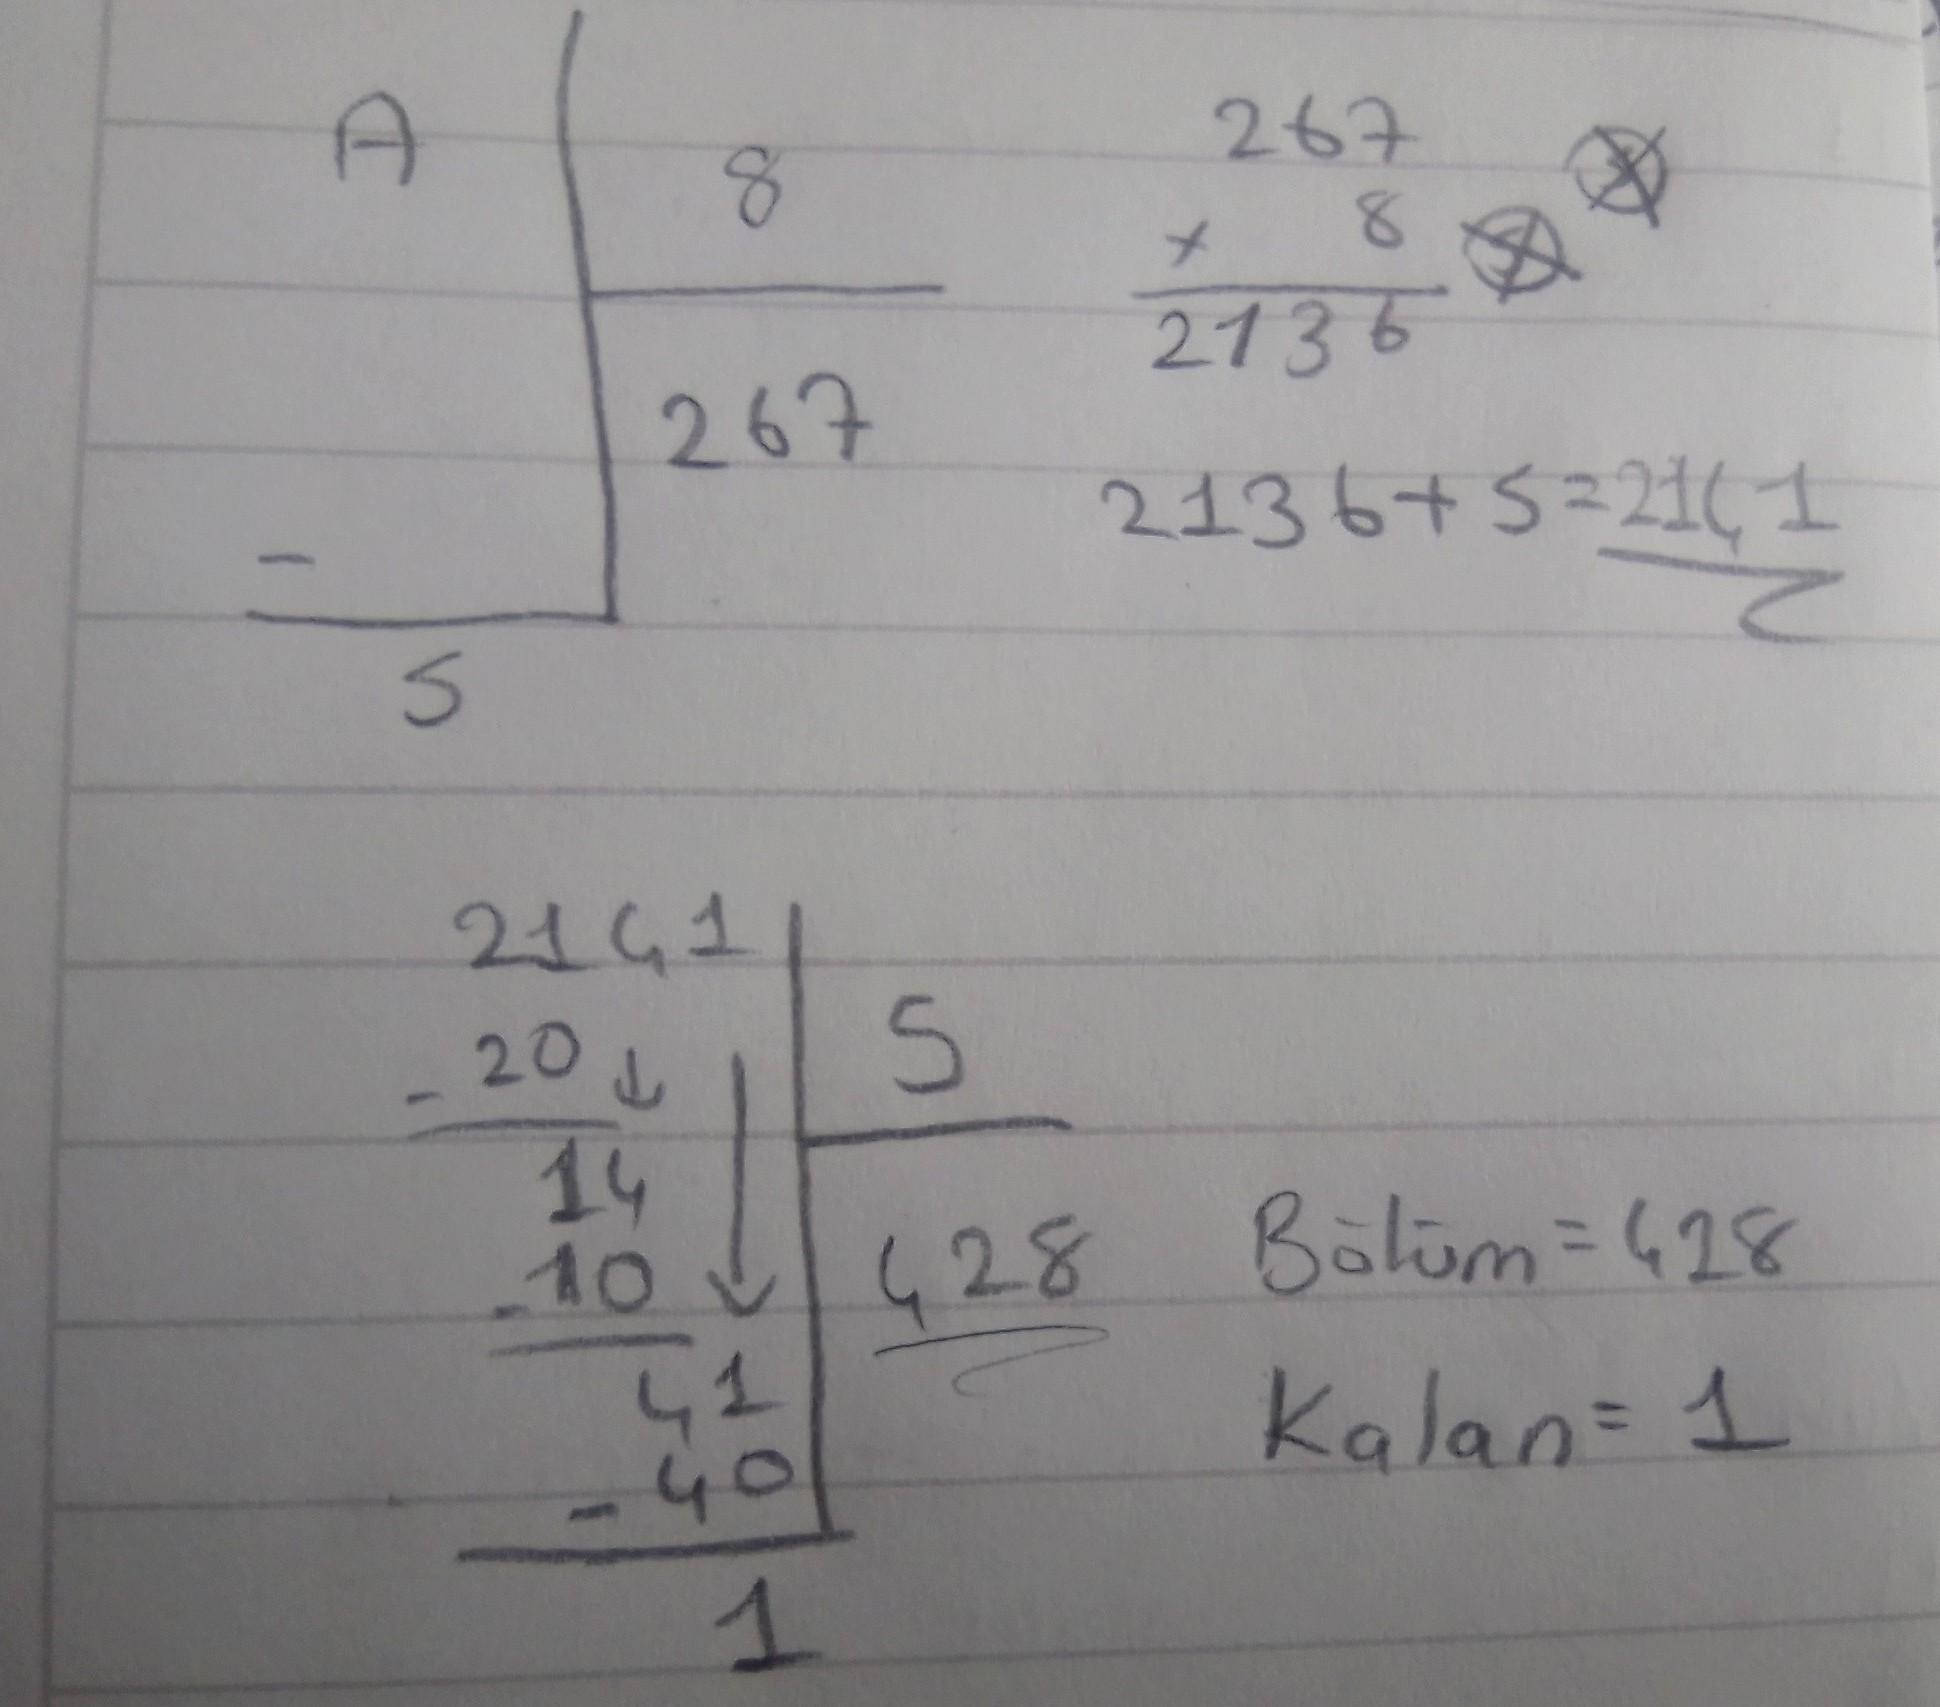 A
8
267
-
5
267
x 8
2136
2136+5=2141
2141
5
-20
14
-10
41
-40
1
428
Bölüm=428
Kalan=1